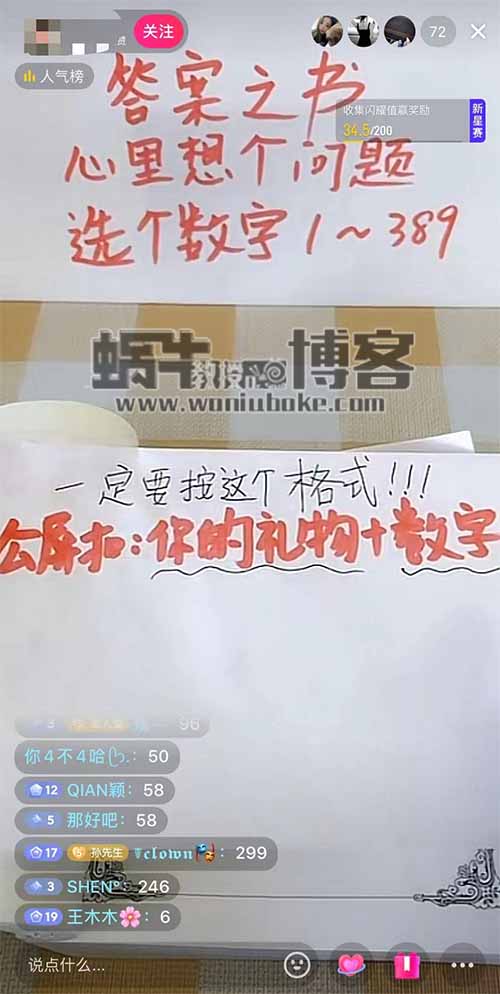 关注
72
人气榜
答案之书
收集闪耀值赢奖励
34.5/200
新星赛
心里想个问题
选个数字1~389
蜗牛教授博客
www.woniuboke.com
一定要按这个格式!!!
公屏扣:你的礼物+数字
3 96
你4不4哈: 50
12 QIAN颖: 58
5 那好吧: 58
17 孙先生 clown: 299
3 SHEN: 246
19 王木木🌸: 6
说点什么...